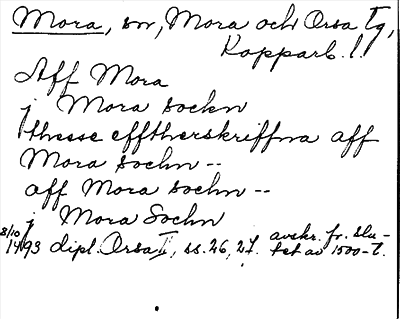 Mora, sn, Mora och Orsa tg,
Kopparb. l.
Aff Mora
j Mora sockn
thesse efftherskriffna aff
Mora sochn --
aff Mora sochn --
j Mora Sochn
8/10 1493 dipl. Orsa II, ss. 26, 27. avskr. fr. slu-
tet av 1500-t.